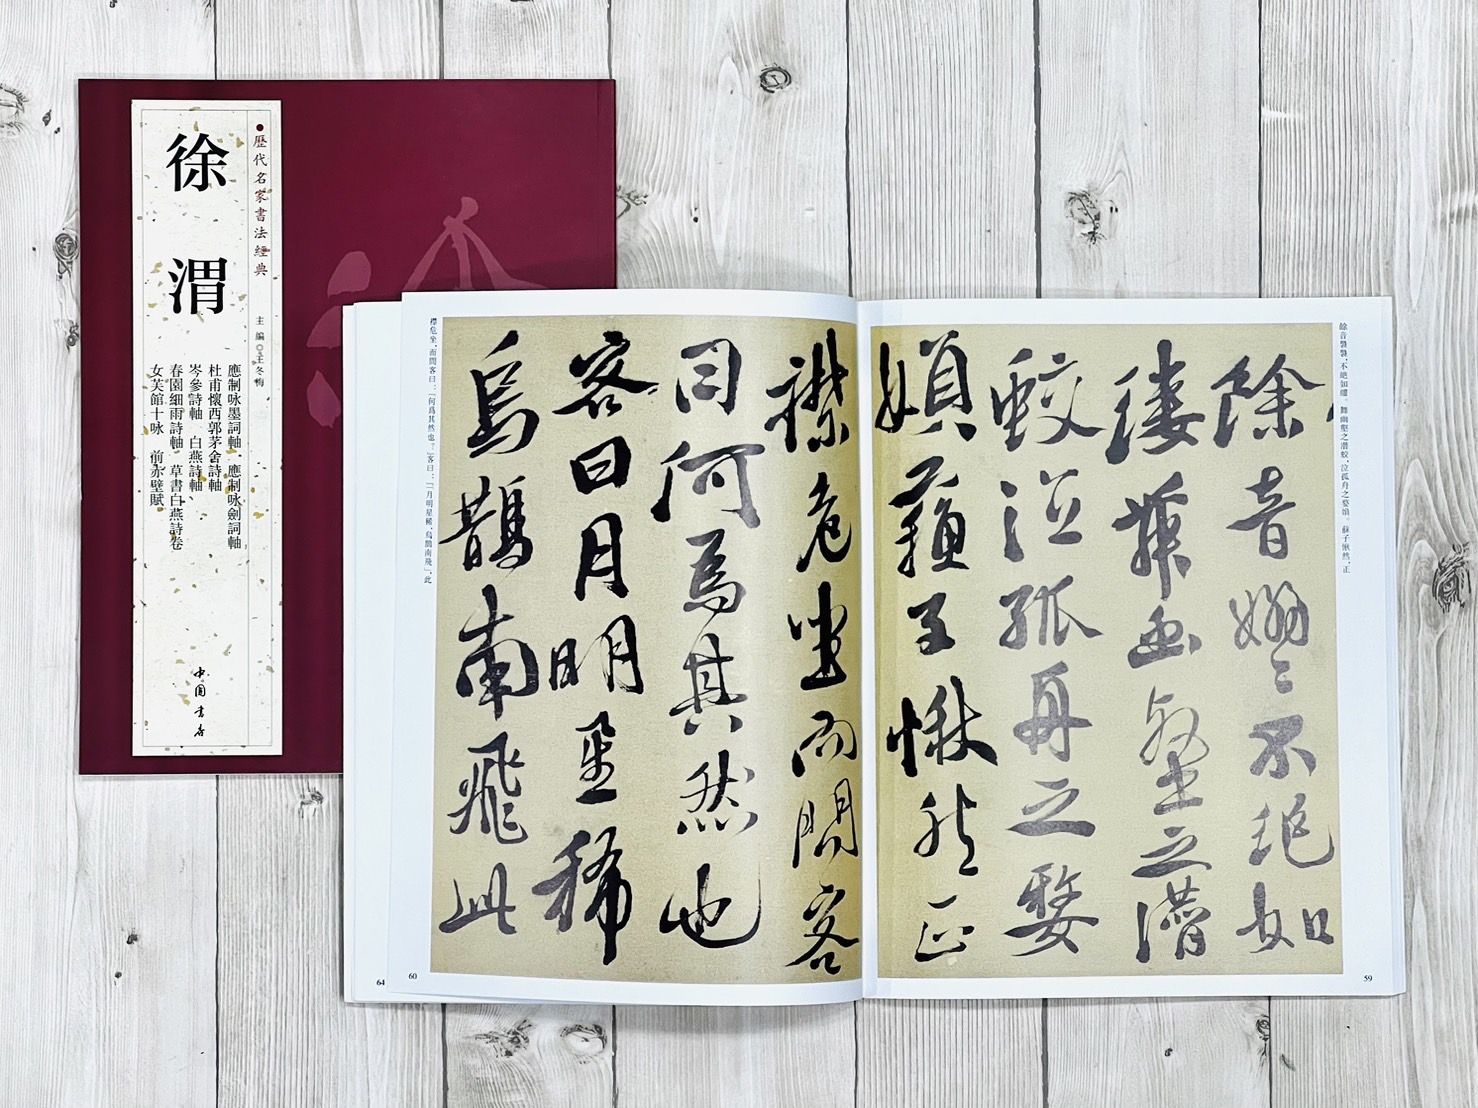 ●歷代名家書法經典
主編◎王冬梅
徐渭
應制咏墨詞軸 應制咏劍詞軸
杜甫懷西郭茅舍詩軸
岑參詩軸 白燕詩軸
春園細雨詩軸 草書白燕詩卷
女芙館十咏 前赤壁賦
中國書店
餘音裊裊,不絕如縷。舞幽壑之潛蛟,泣孤舟之嫠婦。蘇子愀然,正
餘音嫋〻不絕如
縷舞幽壑之潛
蛟泣孤舟之嫠
婦蘓子愀然正
59
襟危坐而問客
曰何為其然也
客曰月明星稀
烏鵲南飛此
襟危坐,而問客曰:「何爲其然也?」客曰:「『月明星稀,烏鵲南飛』,此
60
64